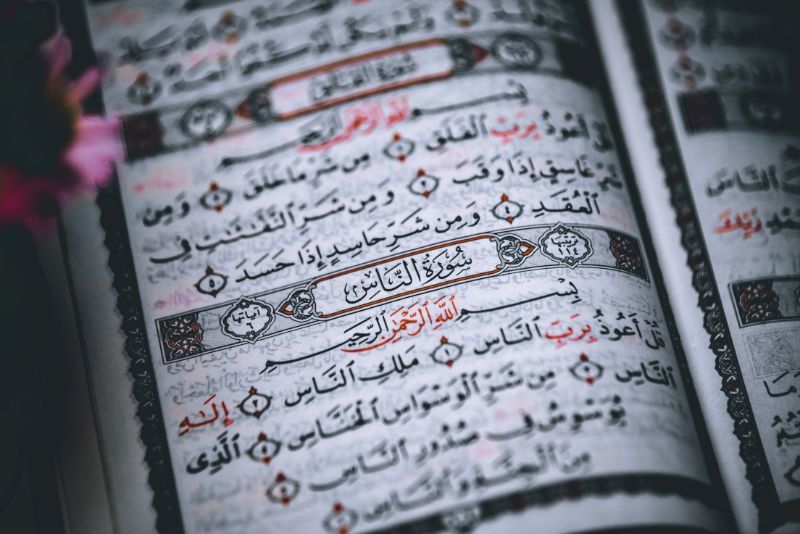 سُورَةُ الْفَلَقِ
بِسْمِ اللَّهِ الرَّحْمَٰنِ الرَّحِيمِ
قُلْ أَعُوذُ بِرَبِّ ٱلْفَلَقِ ١ مِن شَرِّ مَا خَلَقَ ٢ وَمِن
شَرِّ غَاسِقٍ إِذَا وَقَبَ ٣ وَمِن شَرِّ ٱلنَّفَّٰثَٰتِ فِي
ٱلْعُقَدِ ٤ وَمِن شَرِّ حَاسِدٍ إِذَا حَسَدَ ٥
ترتيبها ١١٤ سُورَةُ النَّاسِ آياتها ٦
بِسْمِ اللَّهِ الرَّحْمَٰنِ الرَّحِيمِ
قُلْ أَعُوذُ بِرَبِّ ٱلنَّاسِ ١ مَلِكِ ٱلنَّاسِ ٢ إِلَٰهِ
ٱلنَّاسِ ٣ مِن شَرِّ ٱلْوَسْوَاسِ ٱلْخَنَّاسِ ٤ ٱلَّذِي
يُوَسْوِسُ فِي صُدُورِ ٱلنَّاسِ ٥
مِنَ ٱلْجِنَّةِ وَٱلنَّاسِ ٦